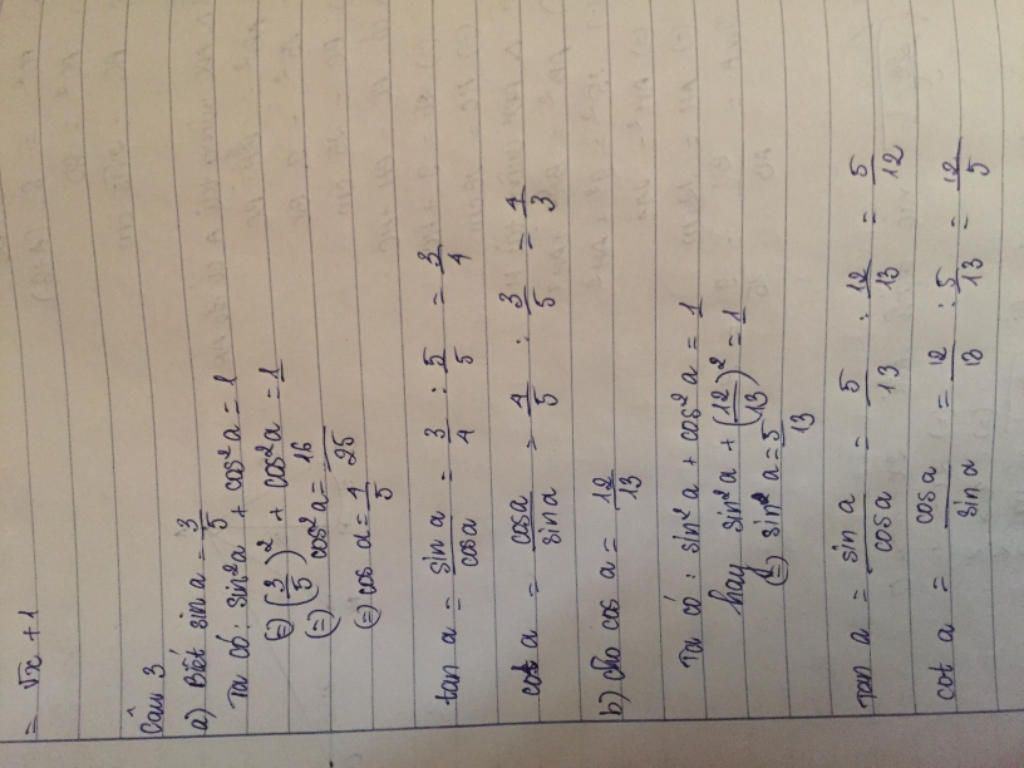 = √x + 1
Câu 3
a) Biết sin a = 3/5
Ta có: sin²a + cos²a = 1
(=) (3/5)² + cos²a = 1
(=) cos²a = 16/25
(=) cos a = 4/5
tan a = sin a/cosa = 3/4 : 5/5 = 3/4
cot a = cosa/sina = 4/5 : 3/5 = 4/3
b) Cho cos a = 12/13
Ta có: sin²a + cos²a = 1
hay sin²a + (12/13)² = 1
(=) sin a = 5/13
tan a = sin a/cosa = 5/13 : 12/13 = 5/12
cot a = cosa/sin a = 12/13 : 5/13 = 12/5